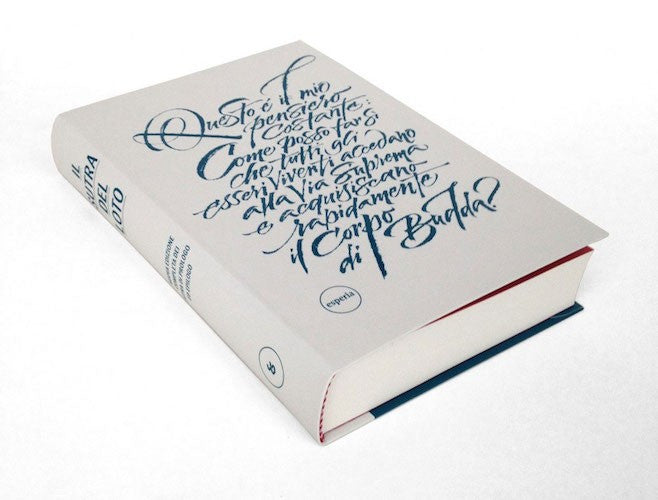 Questo è il mio
pensiero
costante:
Come posso far sì
che tutti gli
esseri viventi accedano
alla Via Suprema
e acquisiscano
rapidamente
il Corpo
di Budda?
esperia
IL
SUTRA
DEL
LOTO
EDIZIONE
COMPLETA DEI
DI PROLOGO
ED EPILOGO